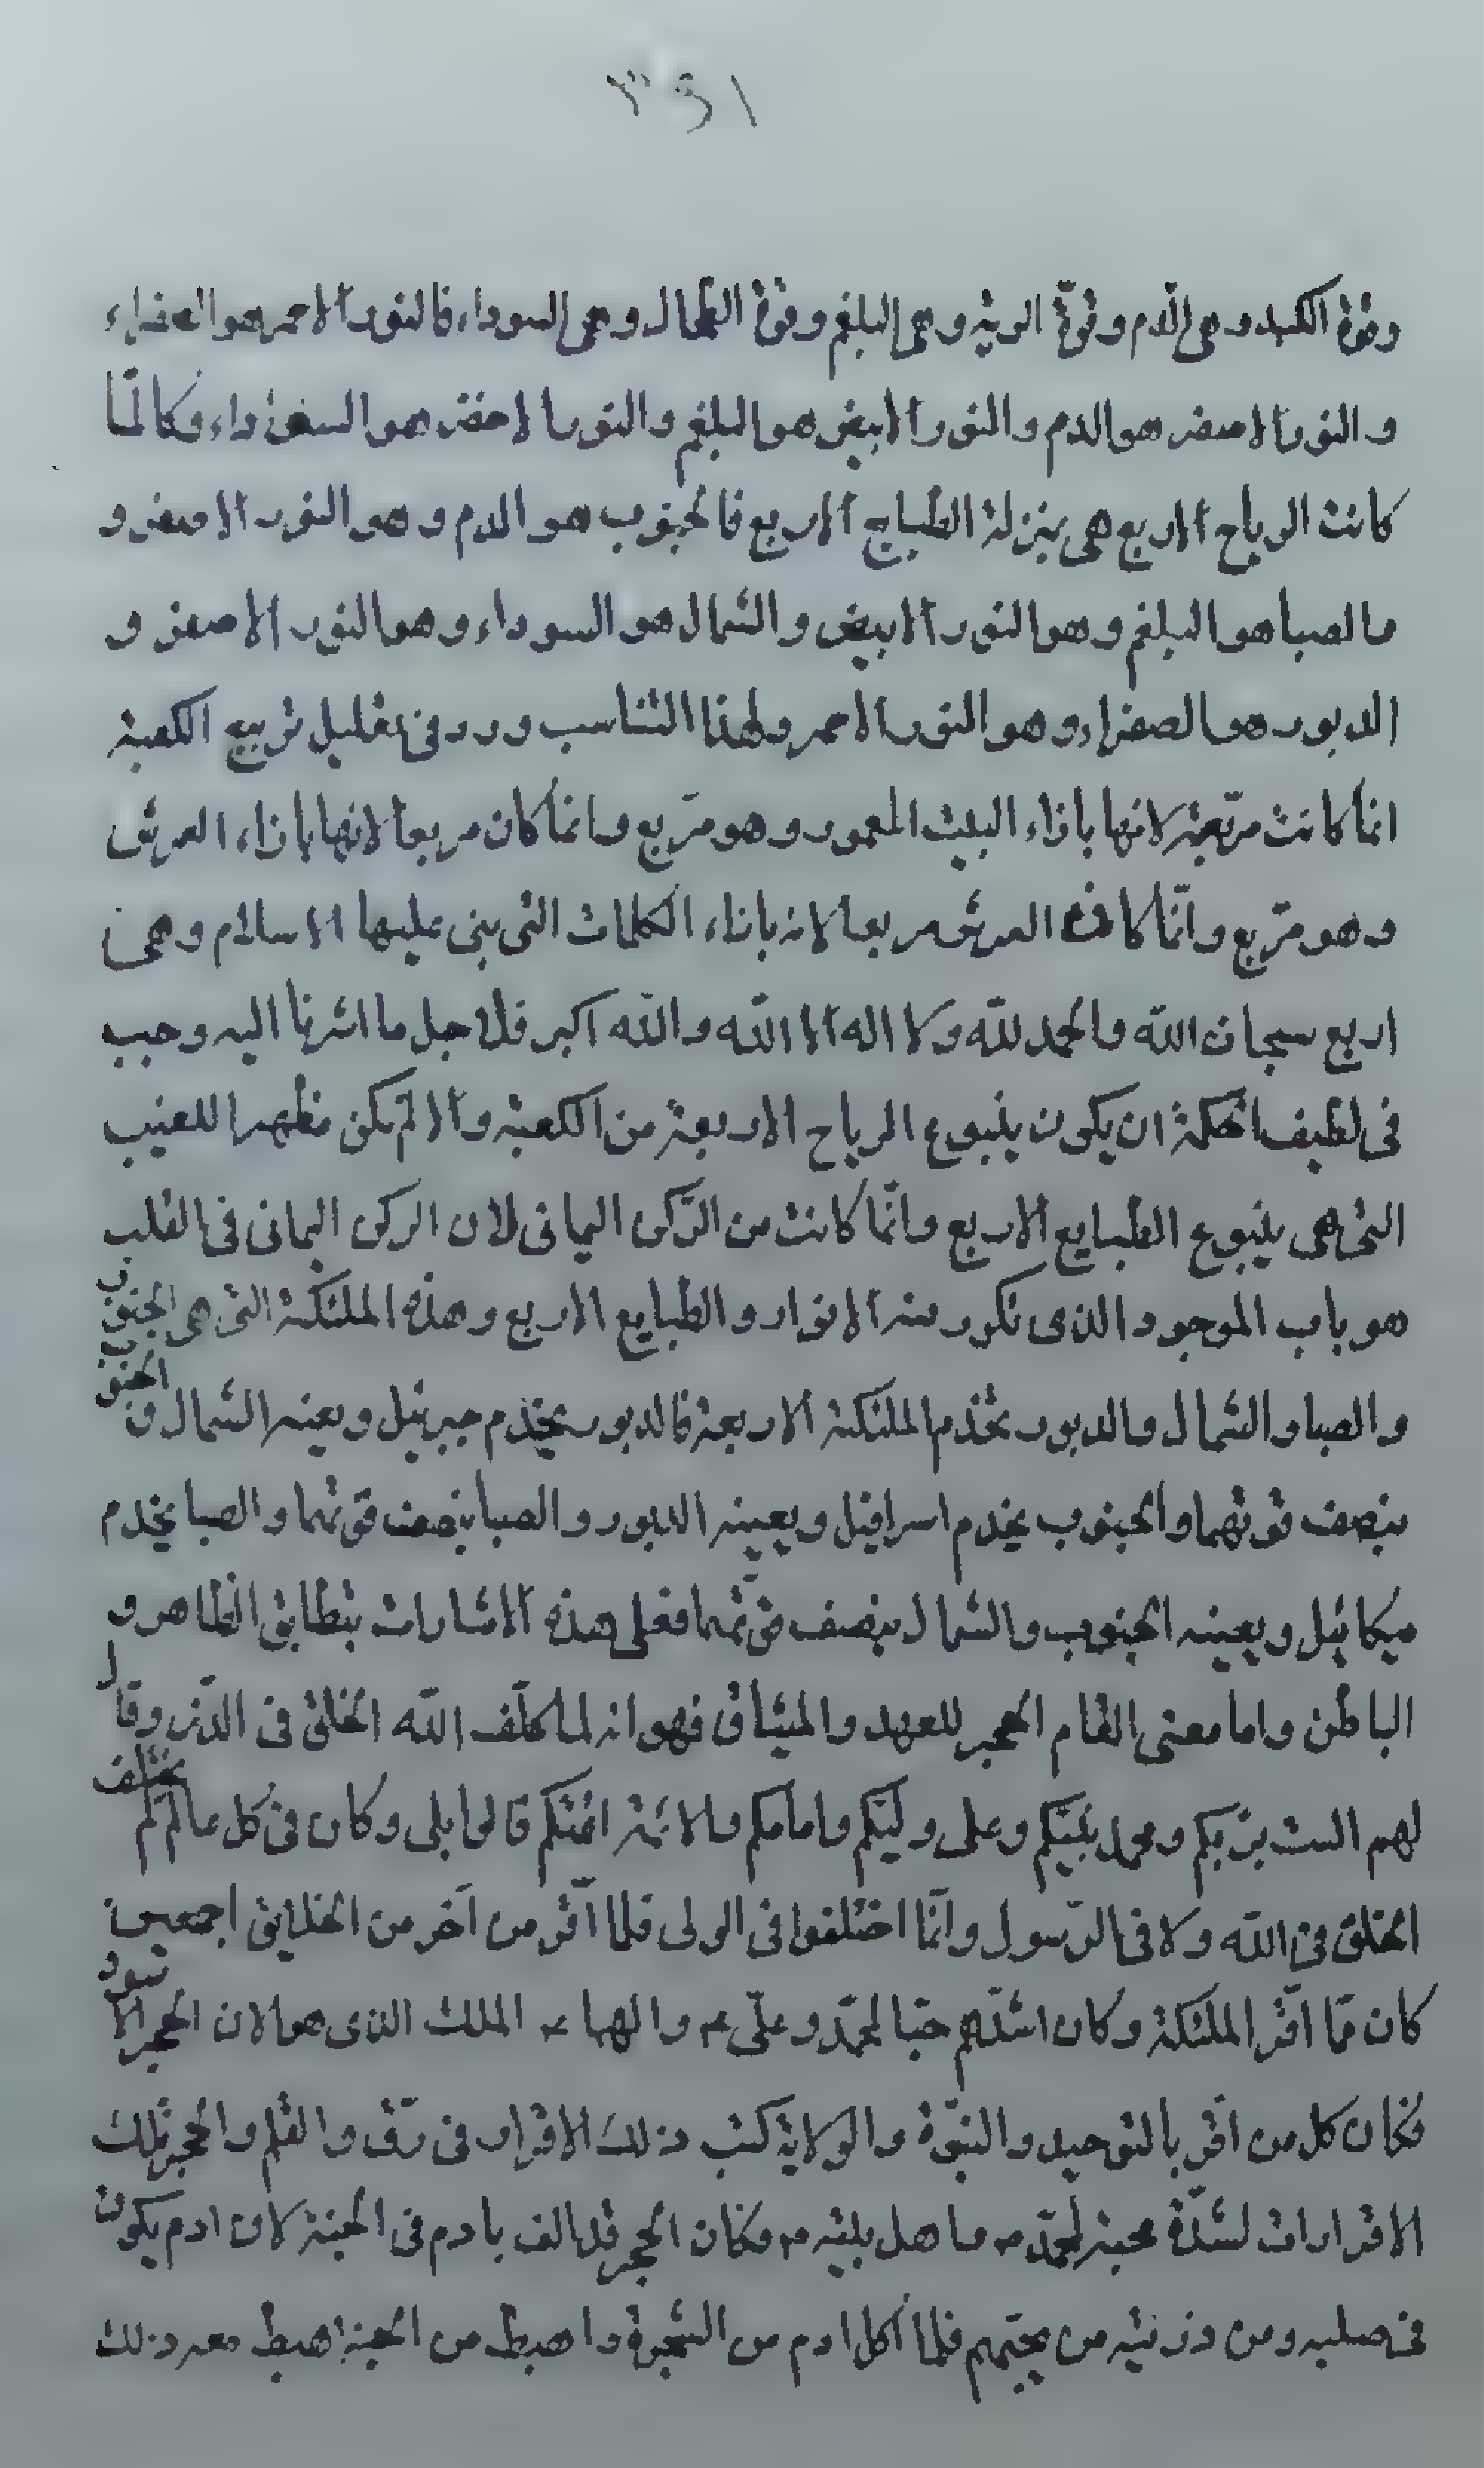 ٣٩١
وقوة الكبد وهى الدم وقوّة الريه وهى البلغم وقوة الطحال وهى السوداء فالنور الاحمر هو الصفراء
و النور الاصفر هو الدم والنور الابيض هو البلغم والنور الاخضر هو السوداء وكالما
كانت الرياح الاربع هى بمنزلة الطبايع الاربع فالجنوب هو الدم و هو النور الاصفر و
مالصبا هو البلغم وهو النور الابيض والشمال هو السوداء وهو النور الاصفر و
الدبور هو الصفراء وهو النور الاحمر ولهذا التناسب ورد فى تعليل تربيع الكعبة
انما كانت مربّعة لانها بازاء البيت المعمور وهو مربّع وانما كان مربعا لانها بازاء العرش
وهو مربّع وانّما كان العرش مربعا لانه بازاء الكلمات التى بنى عليها الاسلام وهى
اربع سبحان الله والحمد لله ولا اله الا الله والله اكبر فلاجل ما اشرنا اليه وجب
فى لطيف الحكمة ان يكون ينبوع الرياح الاربعة من الكعبة والا لم يكن مظهرا للغيب
التى هى ينبوع الطبايع الاربع وانّما كانت من الرّكن اليمانى لان الركن اليمانى فى القلب
هو باب الموجود الذى تكرر منه الانوار والطبايع الاربع وهذه الملئكة التى هى الجنوب
والصبا والشمال والدبور تخدم الملئكة الاربعة فالدبور يخدم جبرئيل ويعينه الشمال و الجنوب
بنصف قوتهما والجنوب يخدم اسرافيل ويعينه الدبور والصبا بنصف قوتهما والصبا يخدم
ميكائيل ويعينه الجنوب والشمال بنصف قوتهما فعلى هذه الاشارات بتطابق الظاهر و
الباطن واما معنى القام الحجر للعهد والميثاق فهو انه لما كلّف الله الخلق فى الذّر وقال
لهم الست بربّكم ومحمد نبيّكم وعلى وليّكم وامامكم والائمة ائمتكم قالوا بلى وكان فى كل عالم لم يختلف
الخلق فى الله ولا فى الرّسول وانّما اختلفوا فى الولى فلما اقّر من اخر من الخلايق اجمعين
كان ممّا اقّر الملئكة وكان اشدّهم حبّا لمحمّد وعلّى ع والهما ع الملك الذى هو الان الحجر الاسود
فكان كل من اقّر بالتوحيد والنبوّة والولاية كتب ذلك الاقرار فى رقّ والقلم والحجر تلك
الاقرارات لشدّة محبة لمحمّد ص واهل بيته ص وكان الحجر قد الف بادم فى الجنة لان ادم يكون
فى صلبه ومن ذريته من يحبّهم فلما أكل ادم من الشجرة واهبط من الجنة اهبط معه ذلك